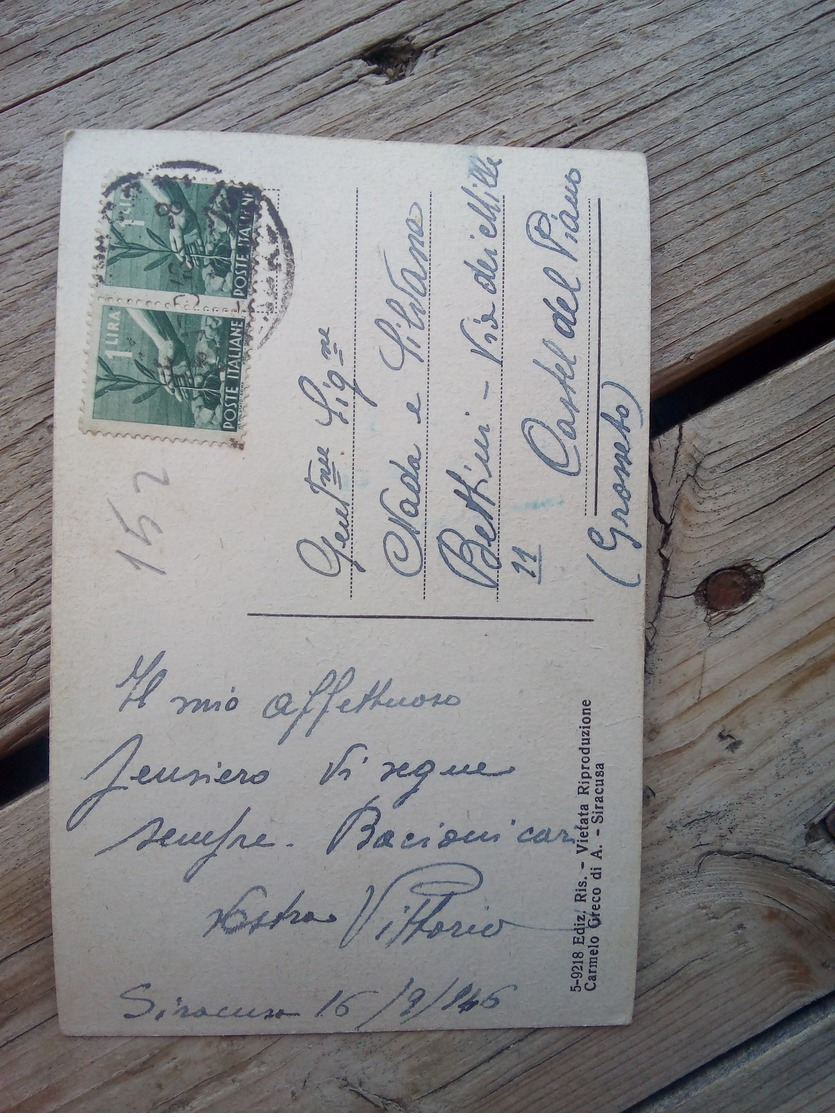 Il mio affettuoso
pensiero vi segue
sempre. Bacioni cari
Vostro Vittorio
Siracusa 16/9/946
5-9218 Ediz. Ris. - Vietata Riproduzione
Carmelo Greco di A. - Siracusa
152
1 LIRA
POSTE ITALIANE
1 LIRA
POSTE ITALIANE
Gent.me Sig.ne
Nada e Silvana
Bettini - Via dei Mille
11
Castel del Piano
(Grosseto)